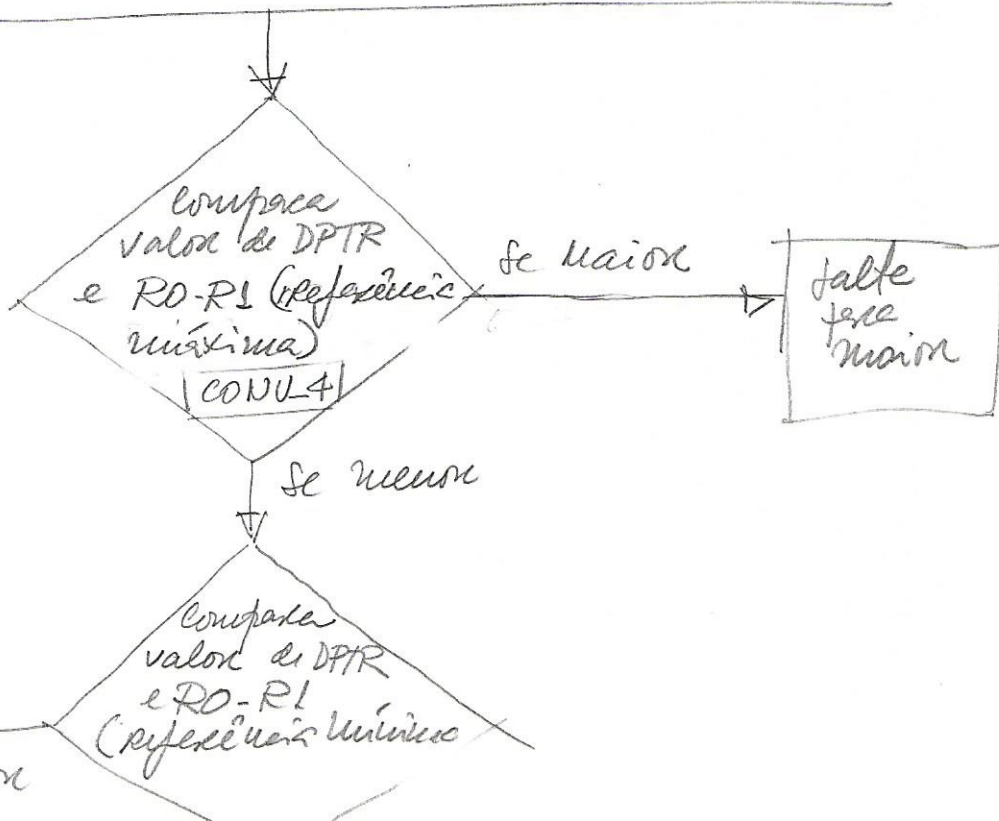 Compara
valor de DPTR
e R0-R1 (referência
máxima)
CONV_4
Se Maior
Salte
para
maior
Se menor
Compara
valor de DPTR
e R0-R1
(referência mínima